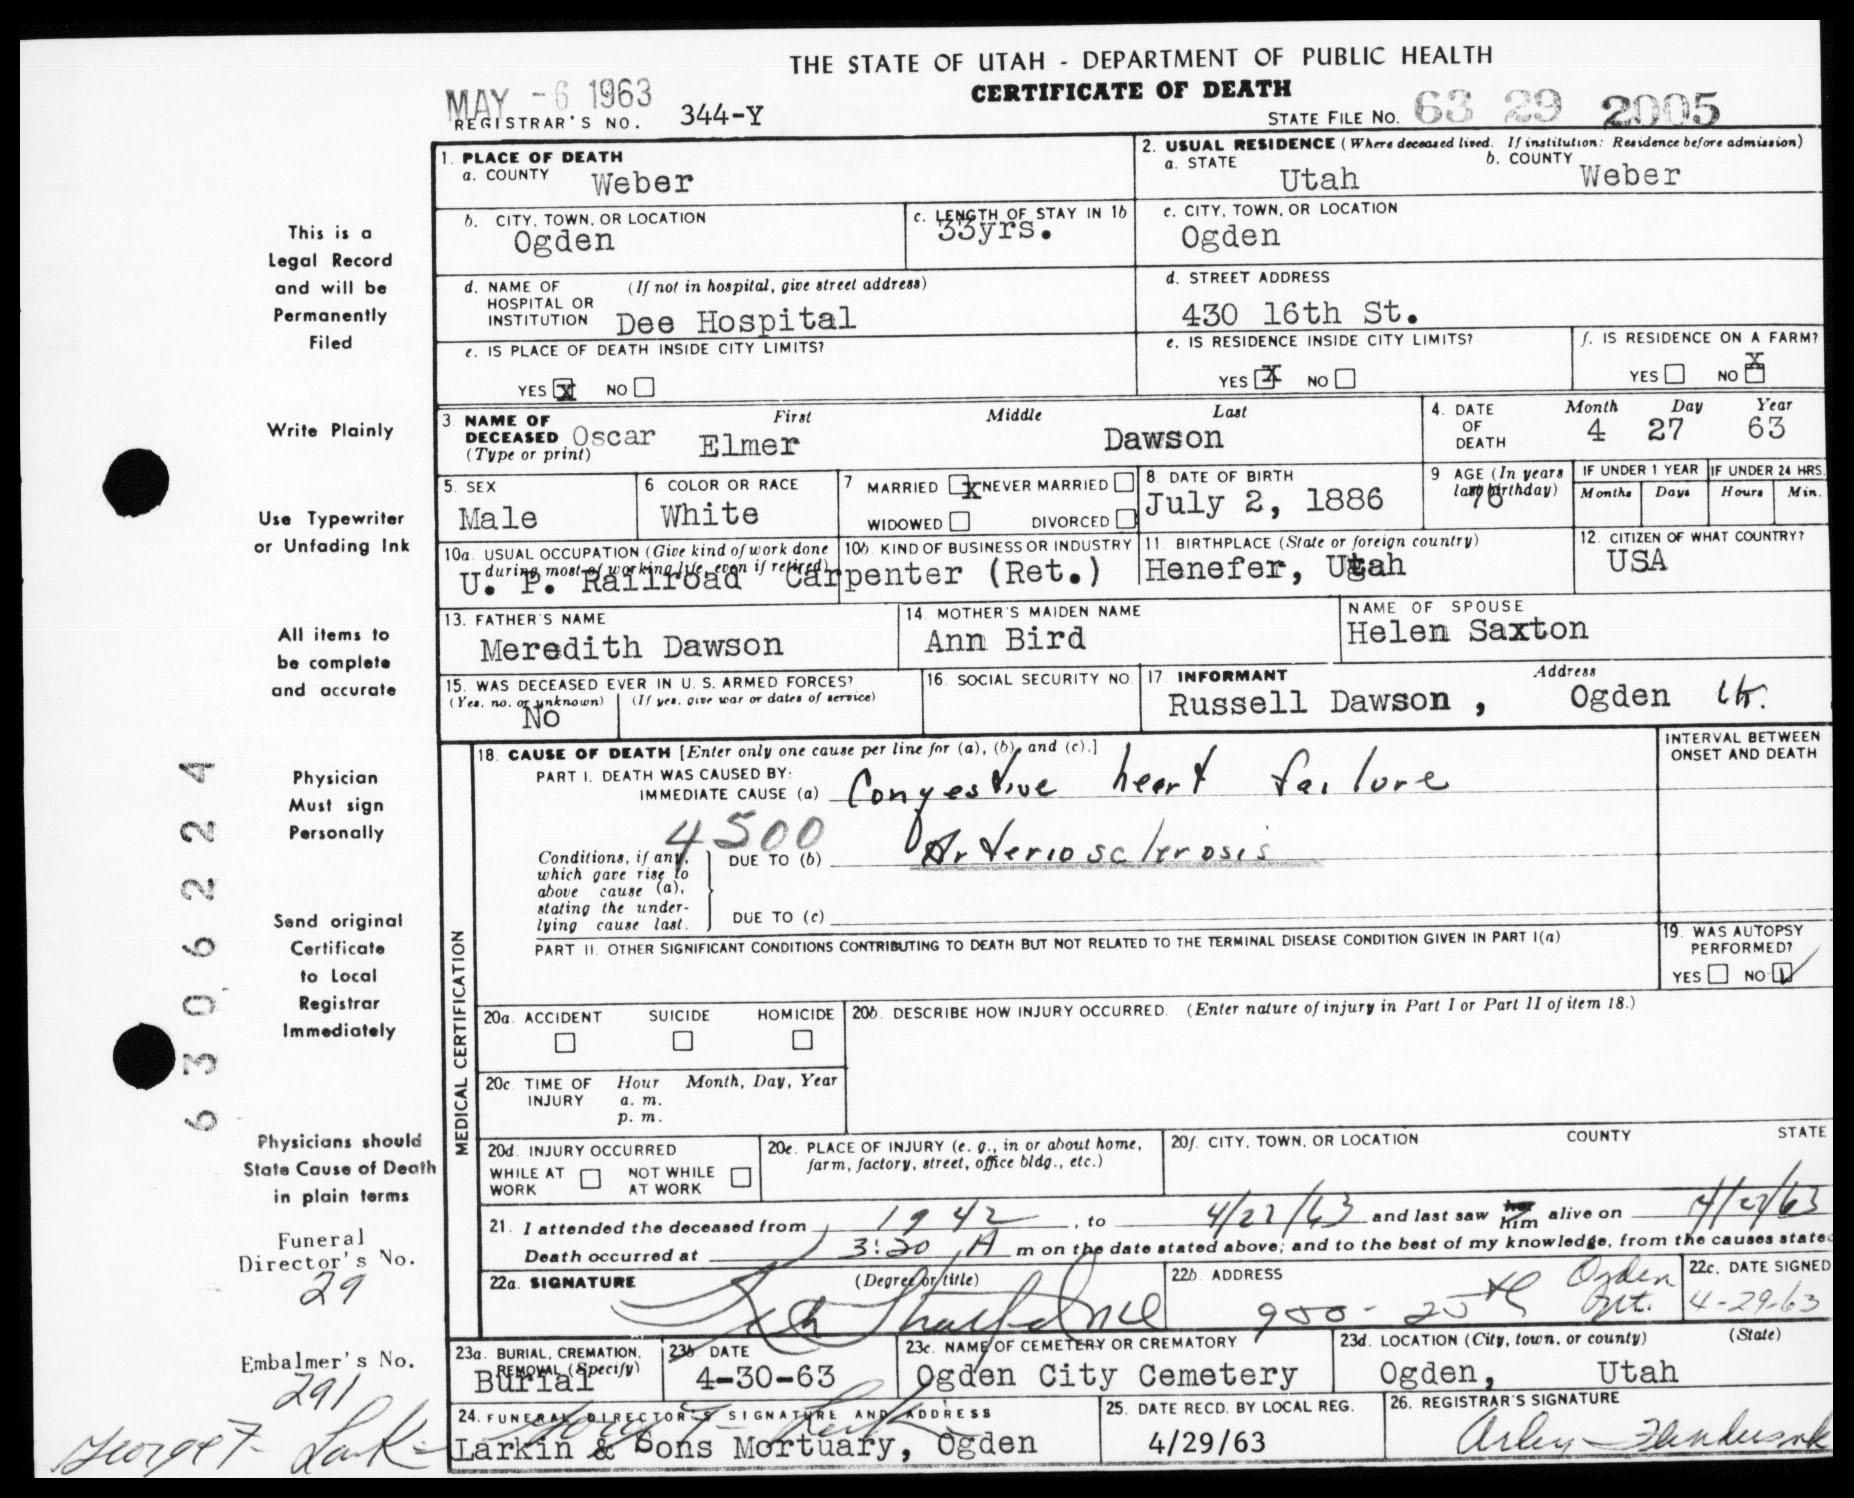 THE STATE OF UTAH - DEPARTMENT OF PUBLIC HEALTH
CERTIFICATE OF DEATH
MAY -6 1963
REGISTRAR'S NO. 344-Y
STATE FILE NO. 63 29 2005
This is a
Legal Record
and will be
Permanently
Filed
Write Plainly
Use Typewriter
or Unfading Ink
All items to
be complete
and accurate
Physician
Must sign
Personally
Send original
Certificate
to Local
Registrar
Immediately
Physicians should
State Cause of Death
in plain terms
Funeral
Director's No.
29
Embalmer's No.
291
George F. Lark
63 06224
1. PLACE OF DEATH
a. COUNTY Weber
2. USUAL RESIDENCE (Where deceased lived. If institution: Residence before admission)
a. STATE Utah b. COUNTY Weber
b. CITY, TOWN, OR LOCATION Ogden
c. LENGTH OF STAY IN 1b 33yrs.
c. CITY, TOWN, OR LOCATION Ogden
d. NAME OF HOSPITAL OR INSTITUTION (If not in hospital, give street address) Dee Hospital
d. STREET ADDRESS 430 16th St.
e. IS PLACE OF DEATH INSIDE CITY LIMITS?
YES X NO
e. IS RESIDENCE INSIDE CITY LIMITS?
YES X NO
f. IS RESIDENCE ON A FARM?
YES NO X
3 NAME OF DECEASED (Type or print) First Middle Last
Oscar Elmer Dawson
4. DATE OF DEATH Month Day Year
4 27 63
5. SEX Male
6 COLOR OR RACE White
7 MARRIED X NEVER MARRIED
WIDOWED DIVORCED
8. DATE OF BIRTH July 2, 1886
9 AGE (In years last birthday) 76
IF UNDER 1 YEAR Months Days
IF UNDER 24 HRS. Hours Min.
10a. USUAL OCCUPATION (Give kind of work done during most of working life, even if retired)
10b. KIND OF BUSINESS OR INDUSTRY
U. P. Railroad Carpenter (Ret.)
11. BIRTHPLACE (State or foreign country) Henefer, Utah
12. CITIZEN OF WHAT COUNTRY? USA
13. FATHER'S NAME Meredith Dawson
14. MOTHER'S MAIDEN NAME Ann Bird
NAME OF SPOUSE Helen Saxton
15. WAS DECEASED EVER IN U. S. ARMED FORCES?
(Yes, no, or unknown) No (If yes, give war or dates of service)
16. SOCIAL SECURITY NO.
17. INFORMANT Address
Russell Dawson , Ogden Ut.
MEDICAL CERTIFICATION
18. CAUSE OF DEATH [Enter only one cause per line for (a), (b), and (c).]
INTERVAL BETWEEN ONSET AND DEATH
PART I. DEATH WAS CAUSED BY:
IMMEDIATE CAUSE (a) Congestive heart failure
4500
Conditions, if any, which gave rise to above cause (a), stating the under-lying cause last.
DUE TO (b) Arteriosclerosis
DUE TO (c)
PART II. OTHER SIGNIFICANT CONDITIONS CONTRIBUTING TO DEATH BUT NOT RELATED TO THE TERMINAL DISEASE CONDITION GIVEN IN PART I(a)
19. WAS AUTOPSY PERFORMED?
YES NO
20a. ACCIDENT SUICIDE HOMICIDE
20b. DESCRIBE HOW INJURY OCCURRED. (Enter nature of injury in Part I or Part II of item 18.)
20c. TIME OF INJURY Hour Month, Day, Year
a. m.
p. m.
20d. INJURY OCCURRED
WHILE AT WORK NOT WHILE AT WORK
20e. PLACE OF INJURY (e. g., in or about home, farm, factory, street, office bldg., etc.)
20f. CITY, TOWN, OR LOCATION COUNTY STATE
21. I attended the deceased from 1942, to 4/27/63 and last saw her him alive on 4/27/63
Death occurred at 3:20 A m on the date stated above; and to the best of my knowledge, from the causes stated
22a. SIGNATURE (Degree or title)
22b. ADDRESS 950-25th Ogden Ut.
22c. DATE SIGNED 4-29-63
23a. BURIAL, CREMATION, REMOVAL (Specify) Burial
23b DATE 4-30-63
23c. NAME OF CEMETERY OR CREMATORY Ogden City Cemetery
23d. LOCATION (City, town, or county) (State)
Ogden, Utah
24. FUNERAL DIRECTOR'S SIGNATURE AND ADDRESS
Larkin & Sons Mortuary, Ogden
25. DATE RECD. BY LOCAL REG. 4/29/63
26. REGISTRAR'S SIGNATURE